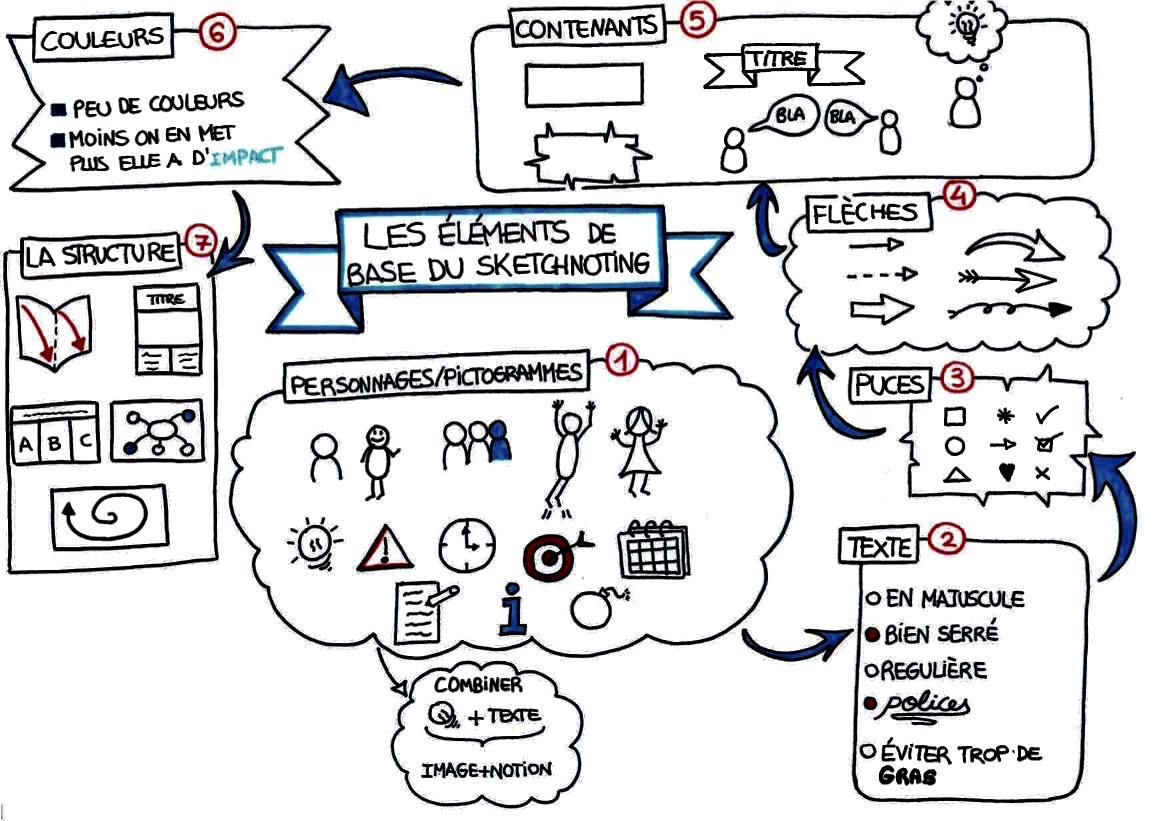 LES ÉLÉMENTS DE
BASE DU SKETCHNOTING
PERSONNAGES/PICTOGRAMMES
1
!
i
COMBINER
+ TEXTE
IMAGE+NOTION
TEXTE
2
EN MAJUSCULE
BIEN SERRÉ
REGULIÈRE
polices
ÉVITER TROP DE
GRAS
PUCES
3
FLÈCHES
4
CONTENANTS
5
TITRE
BLA
BLA
COULEURS
6
PEU DE COULEURS
MOINS ON EN MET
PLUS ELLE A D'IMPACT
LA STRUCTURE
7
TITRE
A B C